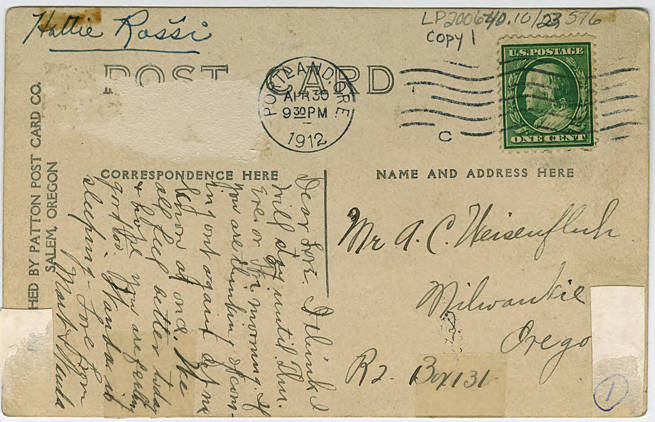 Hattie Rossi
LP200640.10/23576
Copy 1
POST CARD
PORTLAND, ORE.
APR 30
9 30 PM
1912
C
U.S. POSTAGE
ONE CENT
HED BY PATTON POST CARD CO.
SALEM, OREGON
CORRESPONDENCE HERE
NAME AND ADDRESS HERE
Dear Love. I think I
will stay until Thur.
Eve. or Fri morning. If
you are thinking of com-
ing out again let me
know at once. We
all feel better today
& hope you are feeling
good too. Wanda is
sleeping - Love from
Mart & Wanda
Mr A. C. Weisenfluh
Milwaukie
Orego
R2. Box 131
1